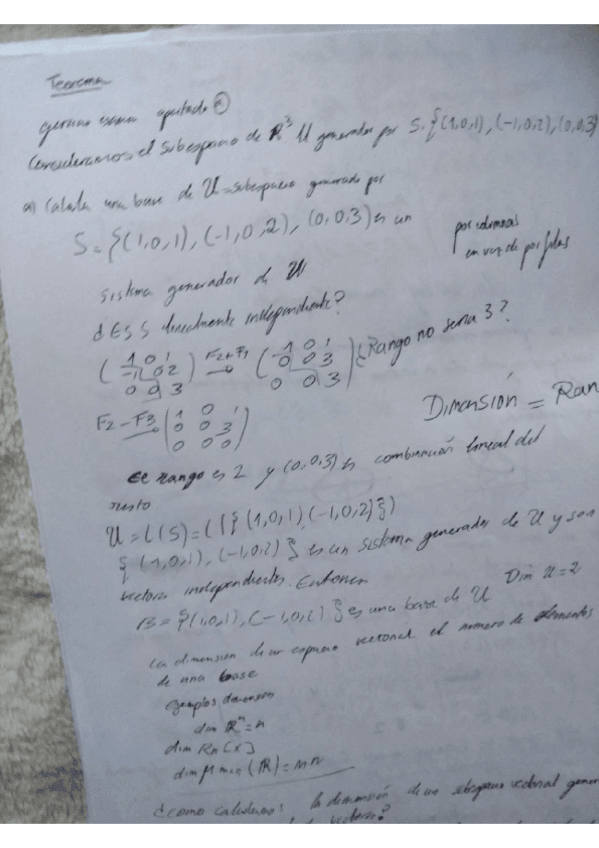 Teorema
examen apartado ⓐ
Consideramos el subespacio de R³ U generado por S={(1,0,1),(-1,0,2),(0,0,3)
a) Calcula una base de U=subespacio generado por
S={(1,0,1),(-1,0,2),(0,0,3) es un
por columnas
en vez de por filas
sistema generador de U
¿Es S linealmente independiente?
(1 0 1 / -1 0 2 / 0 0 3) F2+F1 → (1 0 1 / 0 0 3 / 0 0 3) ¿Rango no seria 3?
F2-F3 → (1 0 1 / 0 0 3 / 0 0 0)
Dimensión = Ran
El rango es 2 y (0,0,3) es combinación lineal del
resto
U=L(S)=L({(1,0,1),(-1,0,2)})
{(1,0,1),(-1,0,2)} es un sistema generador de U y son
vectores independientes. Entonces
B={(1,0,1),(-1,0,2)} es una base de U Dim U=2
La dimension de un espacio vectorial el numero de elementos
de una base
Ejemplos dimension
dim Rⁿ=n
dim Rn[x]
dim Mmxn(R)=mn
¿como calculamos la dimensión de un subespacio vectorial gener
vectores?